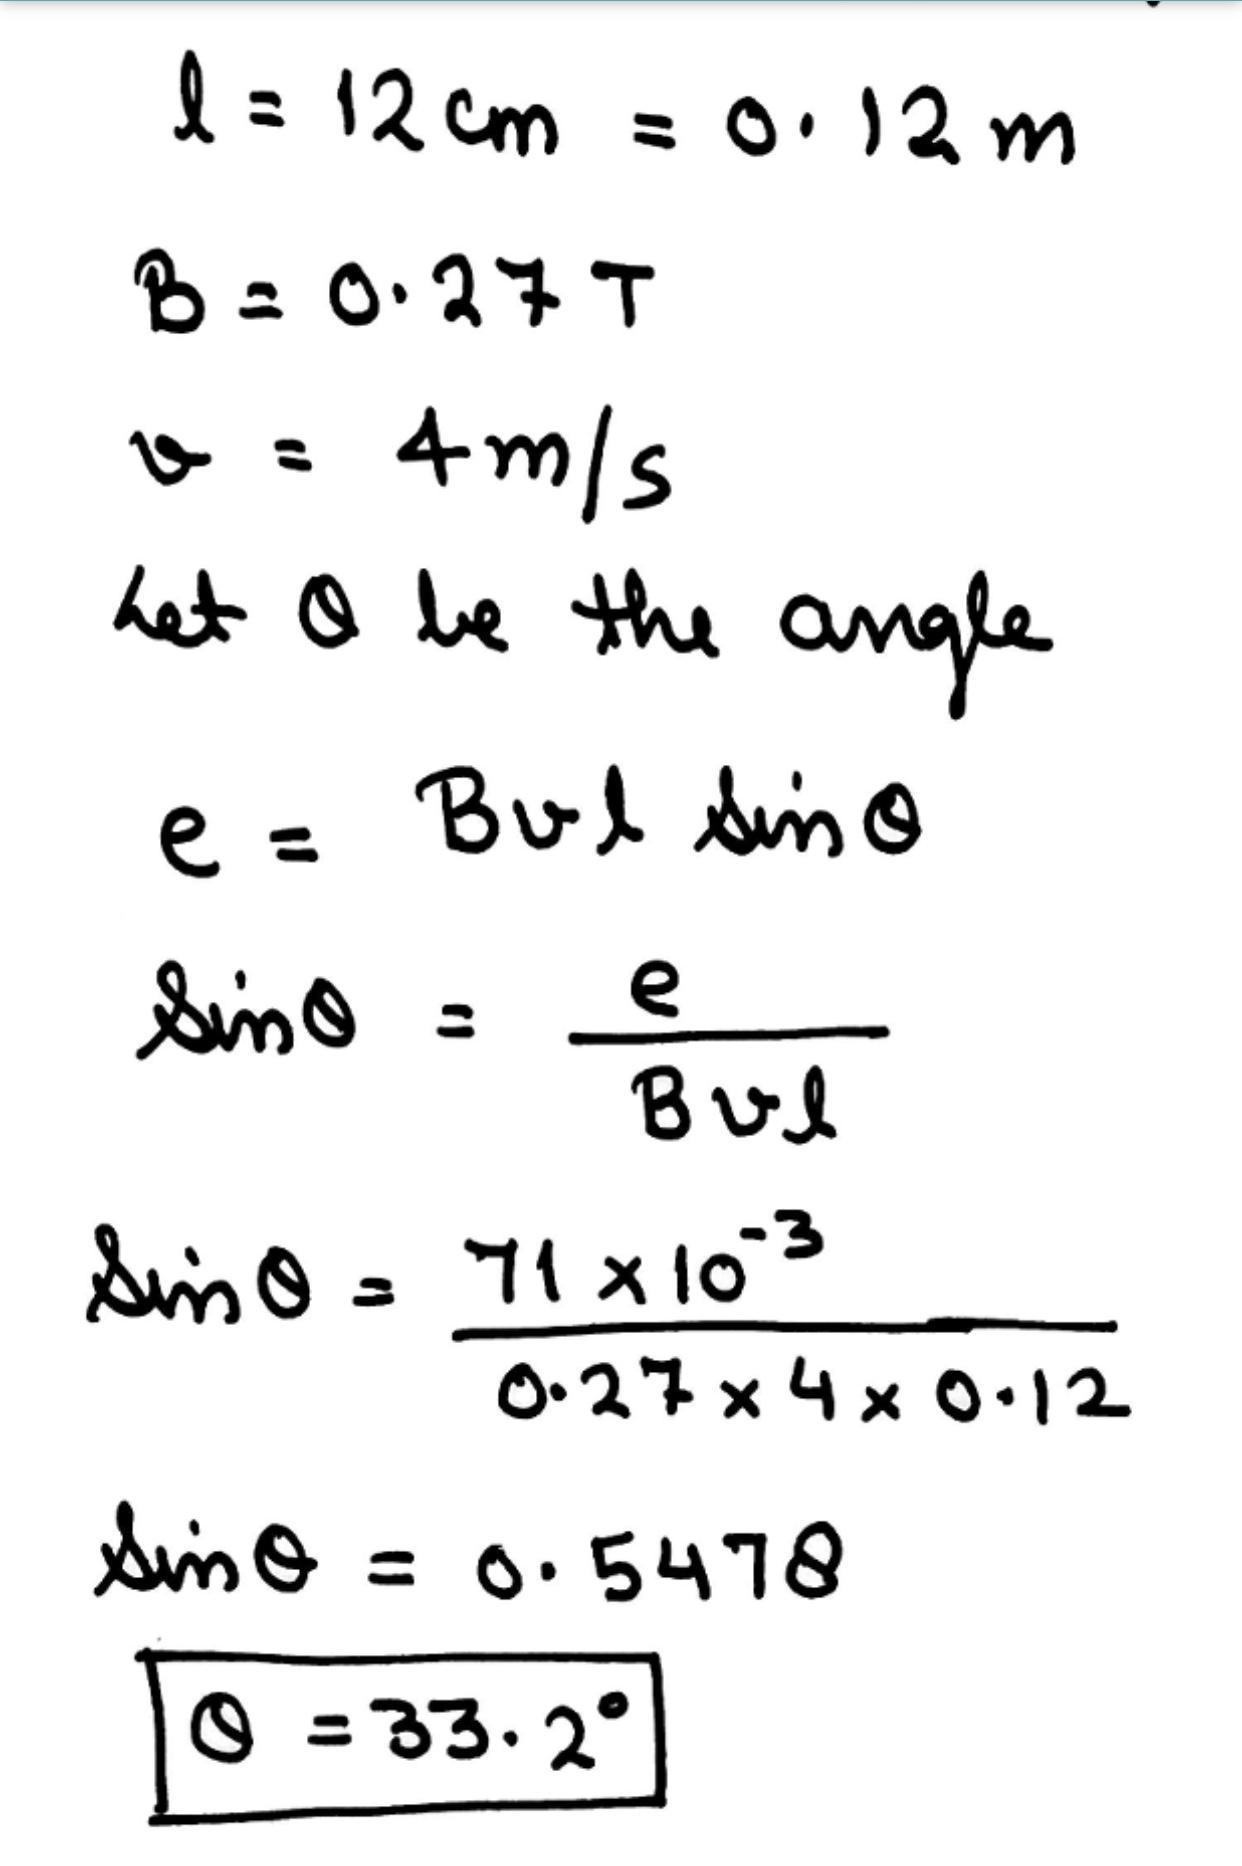 l = 12 cm = 0.12 m
B = 0.27 T
v = 4 m/s
Let θ be the angle
e = Bvl sin θ
Sin θ = e / Bvl
Sin θ = 71 × 10⁻³ / 0.27 × 4 × 0.12
Sin θ = 0.5478
θ = 33.2°